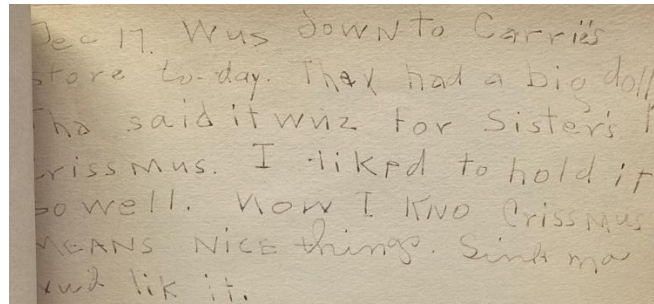 Dec 17. Wus down to Carrie's
store to-day. They had a big doll
Tha said it wuz for Sister's
crissmus. I liked to hold it
so well. Now I KNO Crissmus
MEANS NICE things. Sink ma
wud lik it.